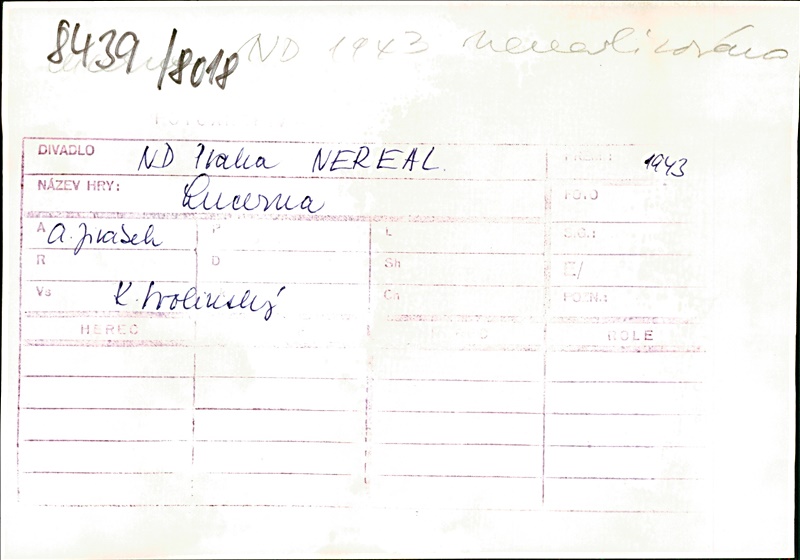 8439/8018 ND 1943 nerealizováno
DIVADLO ND Praha NEREAL. 1943
NÁZEV HRY: Lucerna FOTO
A A. Jirásek P L S.C.:
R D Sh E/
Vs K. Svolinský Ch POZN.:
HEREC ROLE